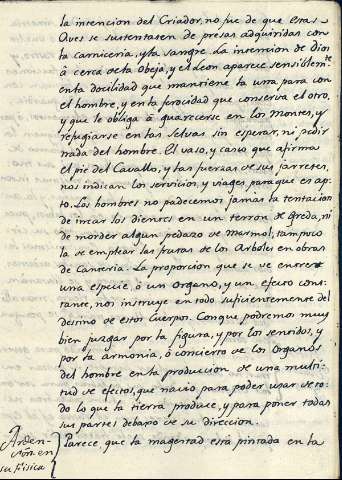 la intencion del Criador, no fue de que estas
Aves se sustentasen de presas adquiridas con
la carniceria, y la sangre. La intencion de Dios
à cerca de la Obeja, y el Leon aparece sensiblemte
en la docilidad que mantiene la una para con
el hombre, y en la ferocidad que conserva el otro,
y que le obliga à guarecerse en los Montes, y
refugiarse en las selvas sin esperar, ni pedir
nada del hombre. El vaso, y casco que afirma
el pie del Cavallo, y las fuerzas de sus jarretes,
nos indican los servicios, y viages para que es ap-
to. Los hombres no padecemos jamas la tentacion
de incar los dientes en un terron de Greda, ni
de morder algun pedazo de Marmol; tampoco
la de emplear las frutas de los Arboles en obras
de Canteria. La proporcion que se ve entre
una especie, ò un organo, y un efecto cons-
tante, nos instruye en todo suficientemente del
destino de estos Cuerpos. Conque podremos muy
bien juzgar por la figura, y por los sentidos, y
por la armonia, ò concierto de los Organos
del hombre en la produccion de una multi-
tud de efectos, que nacio para poder usar de to-
do lo que la tierra produce, y para poner todas
sus partes debaxo de su direccion.
Parece, que la magestad està pintada en la
en
su fisica